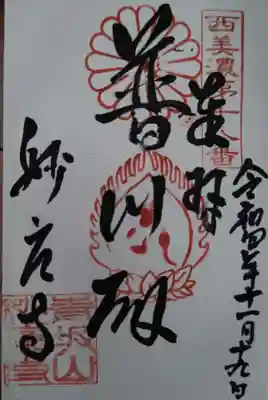 西美濃第十八番
令和四年十一月十九日
奉拝
普門殿
妙応寺